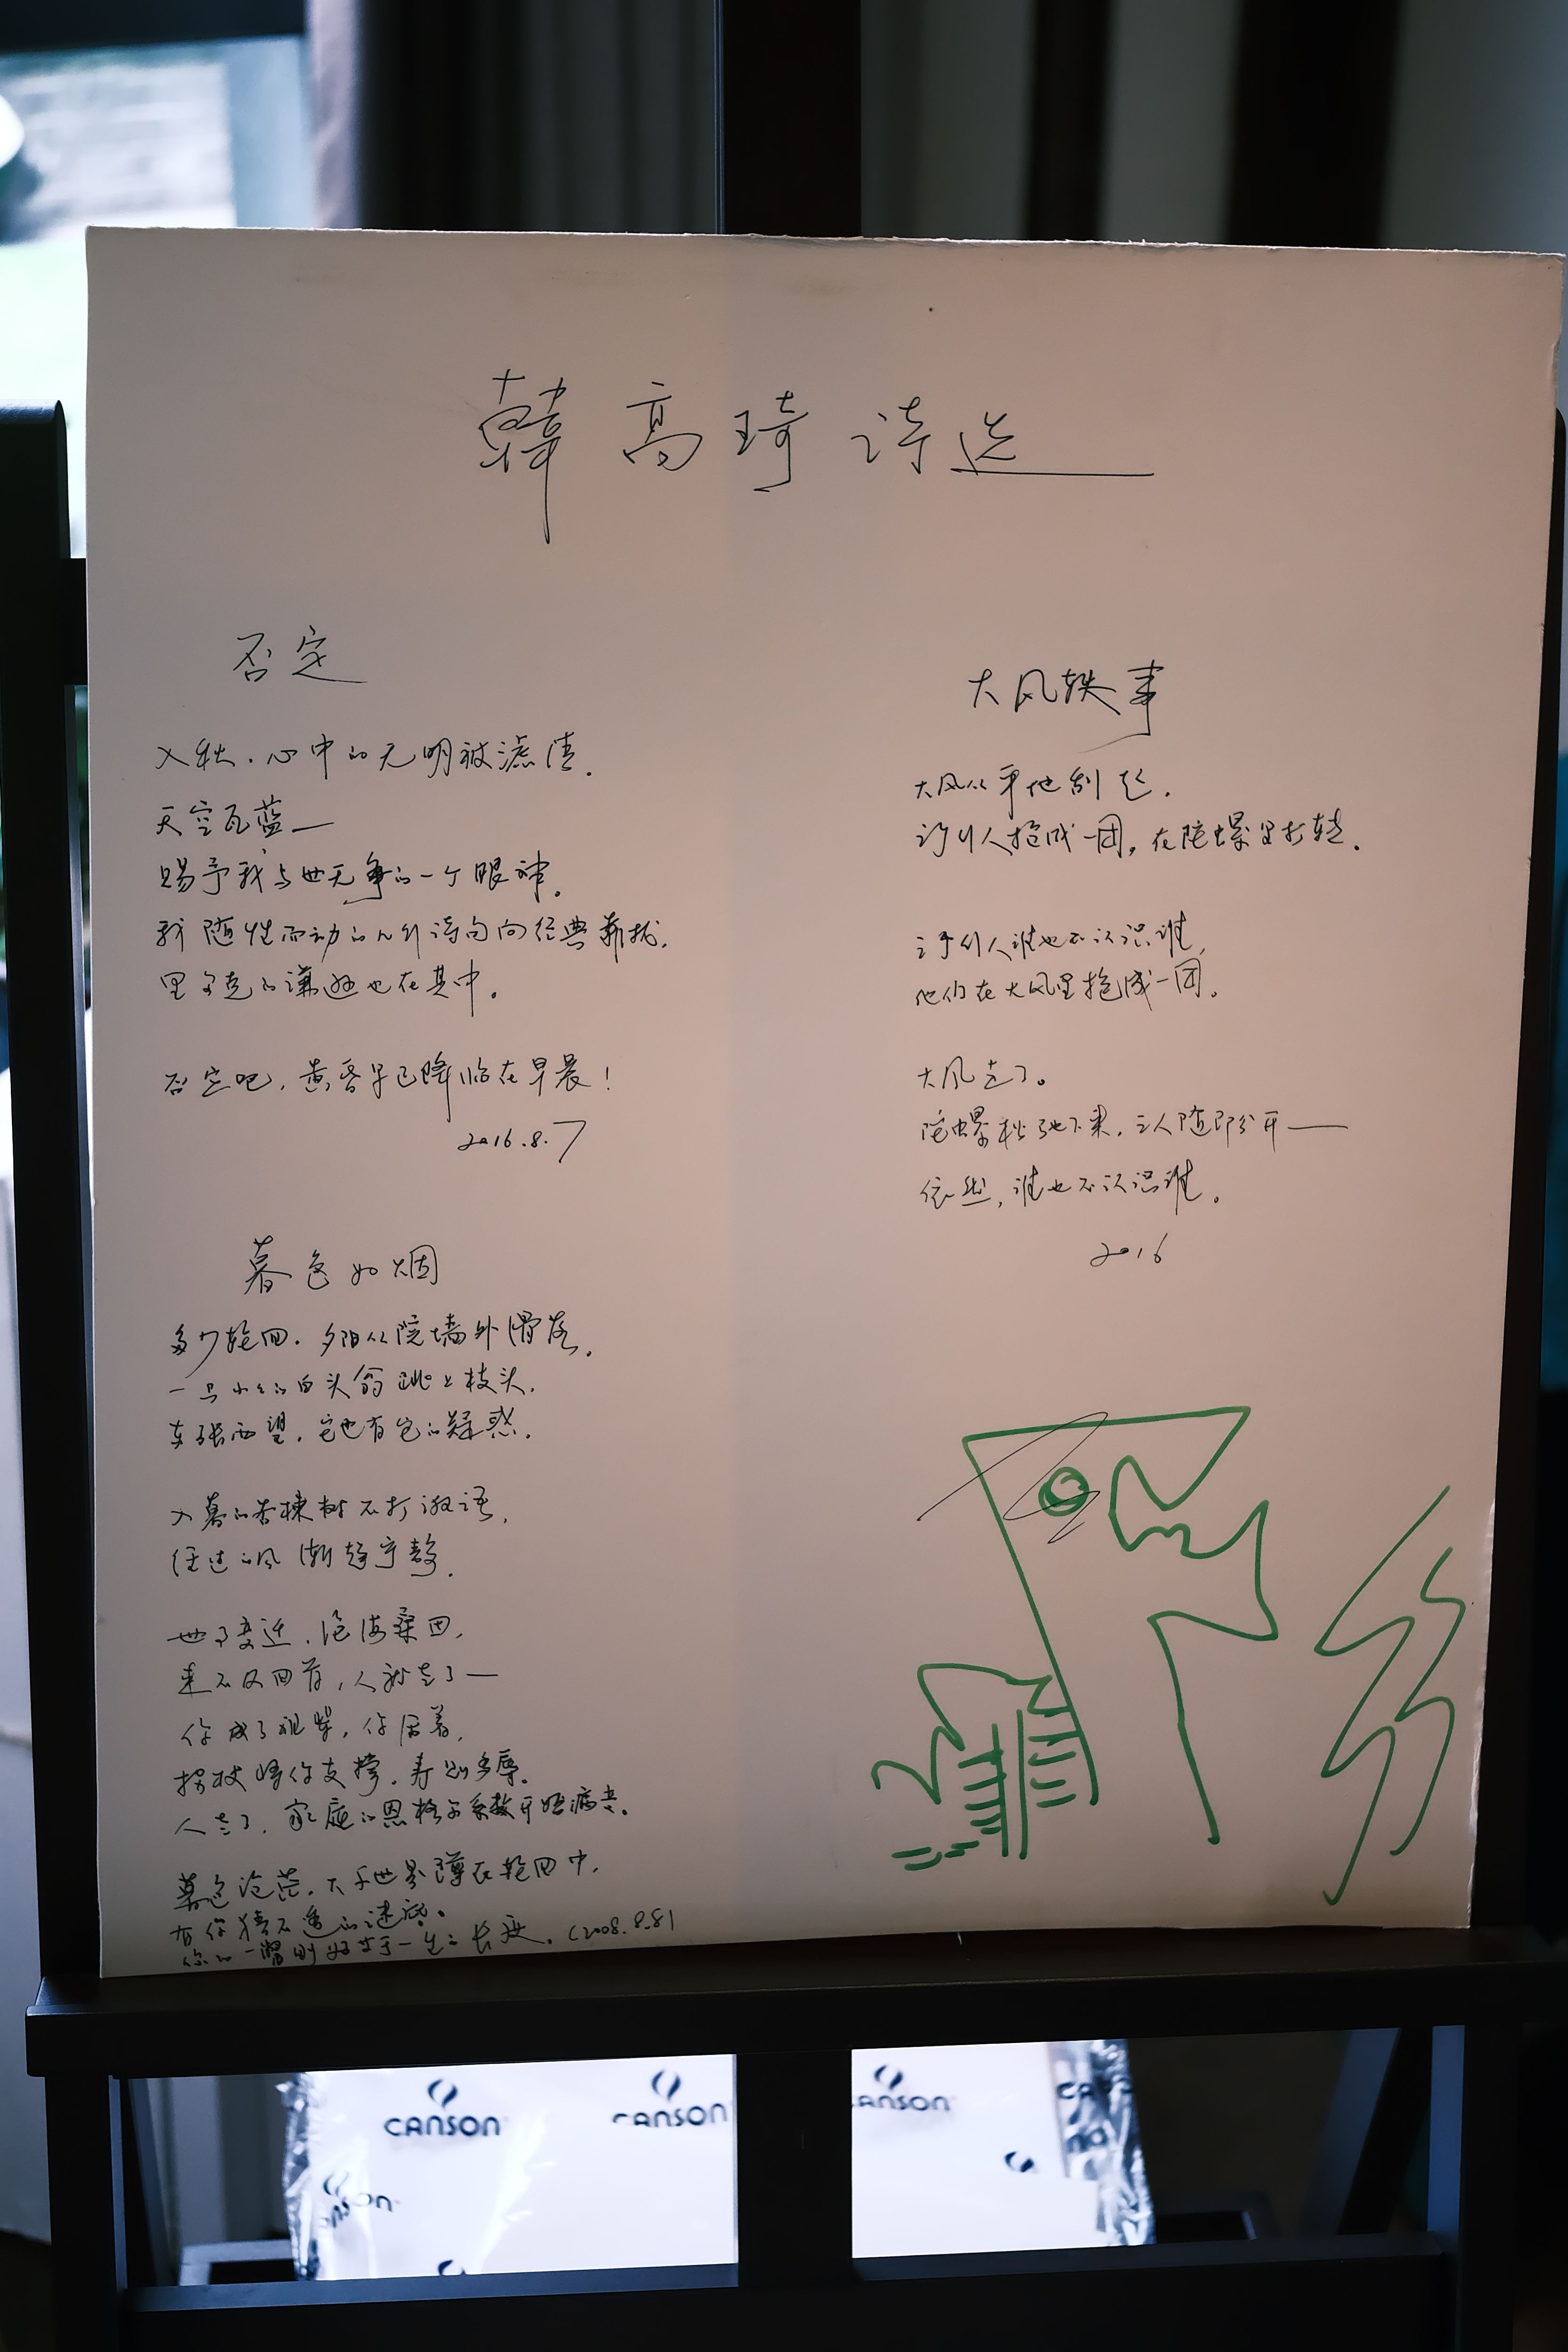 韓高琦诗选
否定
入秋，心中的无明被滤清。
天空瓦蓝—
赐予我与世无争的一个眼神。
我随性而动的几行诗句向经典靠拢。
里尔克的谦逊也在其中。
否定吧，黄昏早已降临在早晨！
2016.8.7
暮色如烟
多少轮回，夕阳从院墙外滑落。
一只小小的白头翁跳上枝头，
东张西望，它也有它的疑惑。
入暮的苦楝树不打诳语，
经过的风渐趋宁静。
世事变迁，沧海桑田，
来不及回首，人就走了—
你成了祖辈，你活着，
拐杖将你支撑，寿则多辱。
人走了，家庭的恩格尔系数开始病变。
暮色沧茫，大千世界蹲在轮回中，
有你猜不透的谜底。
你的一瞥则好于一生之长度。（2008.8.8）
大风轶事
大风从平地刮起，
许多人抱成一团，在陀螺里打转。
许多人谁也不认识谁，
他们在大风里抱成一团。
大风走了。
陀螺松弛下来，众人随即分开——
依然，谁也不认识谁。
2016
CANSON
CANSON
CANSON